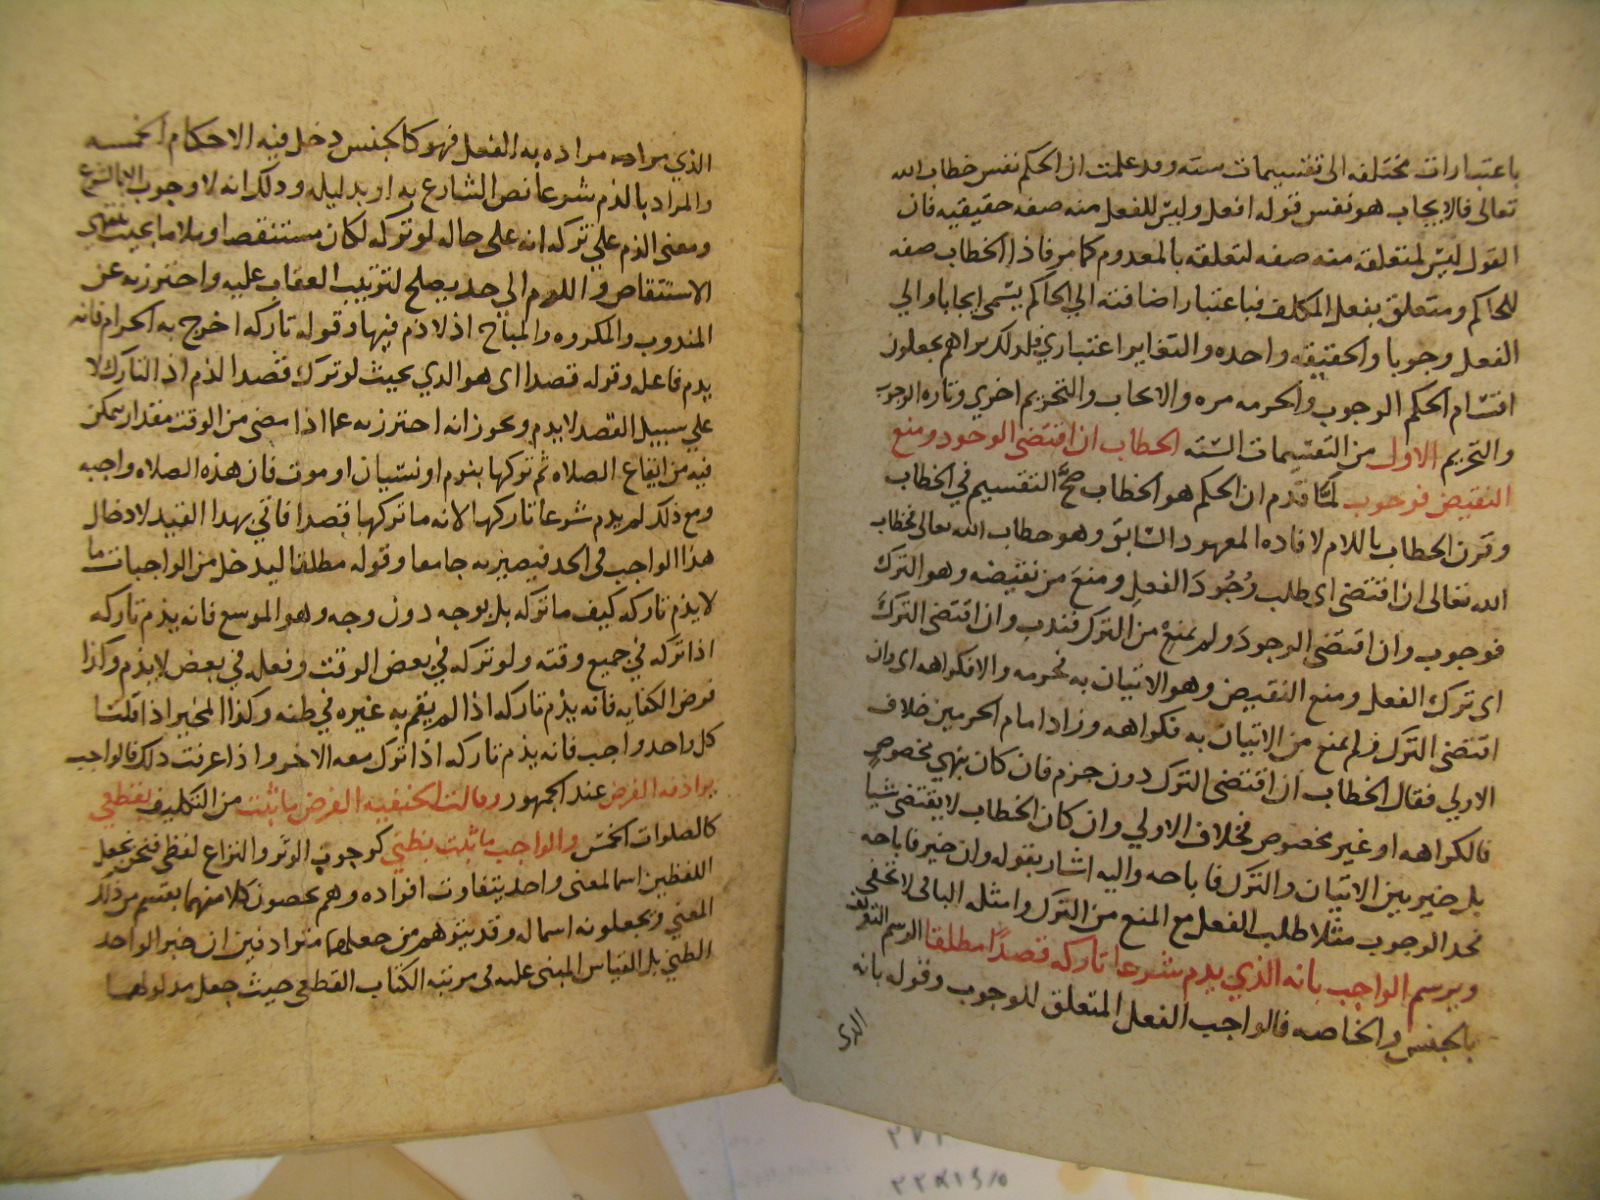 باعتبارات مختلفه الى تقسيمات سته وقد علمت ان الحكم نفس خطاب الله
تعالى فالايجاب هو نفس قوله افعل وليس للفعل منه صفه حقيقيه فان
القول ليس لمتعلقه منه صفه لتعلقه بالمعدوم كما مر فاذا الخطاب صفه
للحاكم ومتعلق بفعل المكلف فباعتبار اضافته الي الحاكم يسمى ايجابا والي
الفعل وجوبا والحقيقه واحده والتغاير اعتباري فلذلك تراهم يجعلون
اقسام الحكم الوجوب والحرمه مره والايجاب والتحريم اخري وتاره الوجوب
والتحريم الاول من التقسيمات السته الخطاب ان اقتضى الوجود ومنع
النقيض فوجوب لما قدم ان الحكم هو الخطاب صح التقسيم في الخطاب
وقرن الخطاب باللام لافاده المعهود السابق وهو خطاب الله تعالى فخطاب
الله تعالى ان اقتضى اى طلب وُجُودَ الفعلِ ومنعَ من نقيضه وهو الترك
فوجوب وان اقتضى الوجودَ ولم يمنعْ من الترك فندب وان اقتضى التركَ
اى ترك الفعل ومنع النقيض وهو الاتيان به فحرمه والا فكراهه اى وان
اقتضى الترك ولم يمنع من الاتيان به فكراهه وزاد امام الحرمين خلاف
الاولي فقال الخطاب ان اقتضى الترك دون جزم فان كان بنهي مخصوص
فالكراهه او غير مخصوص فخلاف الاولي وان كان الخطاب لا يقتضى شيا
بل خير بين الاتيان والترك فاباحه واليه اشار بقوله وان خير فاباحه
فحد الوجوب مثلا طلب الفعل مع المنع من الترك وامثله الباقى لا تخفى
ويرسم الواجب بانه الذي يذم شرعا تاركه قصدًا مطلقا الرسم التعريف
بالجنس والخاصه فالواجب الفعل المتعلق للوجوب وقوله بانه
الذى
الذي مراده به الفعل فهو كالجنس دخل فيه الاحكام الخمسه
والمراد بالذم شرعا نص الشارع به او بدليله وذلك انه لا وجوب الا بالشرع
ومعنى الذم علي تركه انه على حاله لو تركه لكان مستنقصا وملاما بحيث ينتهى
الاستنقاص واللوم الي حد يصلح لترتيب العقاب عليه واحترز به عن
المندوب والمكروه والمباح اذ لا ذم فيها وقوله تاركه اخرج به الحرام فانه
يذم فاعله وقوله قصدا اى هو الذي بحيث لو ترك قصدا لذم اذ التارك لا
علي سبيل القصد لا يذم ويجوز انه احترز به عما اذا مضى من الوقت مقدار يمكن
فيه من ايقاع الصلاه ثم تركها بنوم او نسيان او موت فان هذه الصلاه واجبه
ومع ذلك لم يذم شرعا تاركها لانه ما تركها قصدا فاتي بهذا القيد لادخال
هذا الواجب فى الحد فيصير به جامعا وقوله مطلقا ليدخل من الواجبات ما
لا يذم تاركه كيف ما تركه بل بوجه دون وجه وهو الموسع فانه يذم تاركه
اذا تركه في جميع وقته ولو تركه في بعض الوقت وفعله في بعض لا يذم وكذا
فرض الكفايه فانه يذم تاركه اذا لم يقم به غيره في ظنه وكذا المخير اذا قلنا
كل واحد واجب فانه يذم تاركه اذا ترك معه الاخر واذا عرفت ذلك فالواجب
يرادفه الفرض عند الجمهور وقالت الحنفيه الفرض ما ثبت من التكليف بقطعي
كالصلوات الخمس والواجب ما ثبت بظني كوجوب الوتر والنزاع لفظى فنحن نجعل
اللفظين اسما لمعنى واحد يتفاوت افراده وهم يخصون كلا منهما بقسم من ذلك
المعنى ويجعلونه اسما له وقد يتوهم من جعلهما مترادفين ان خبر الواحد
الظني بل القياس المبنى عليه فى مرتبه الكتاب القطعى حيث جعل مدلولهما